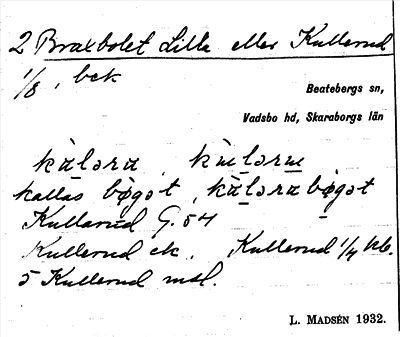 2 Braxbolet Lille eller Kullerud
1/8, bek
Beatebergs sn,
Vadsbo hd, Skaraborgs län
kàləra, 
kallas bø̀gət, kàlərabø̀gət
Kullarud G. 54
Kullerud ek. Kullerud 1/4 kb.
5 Kullerud mal.
L. MADSÉN 1932.